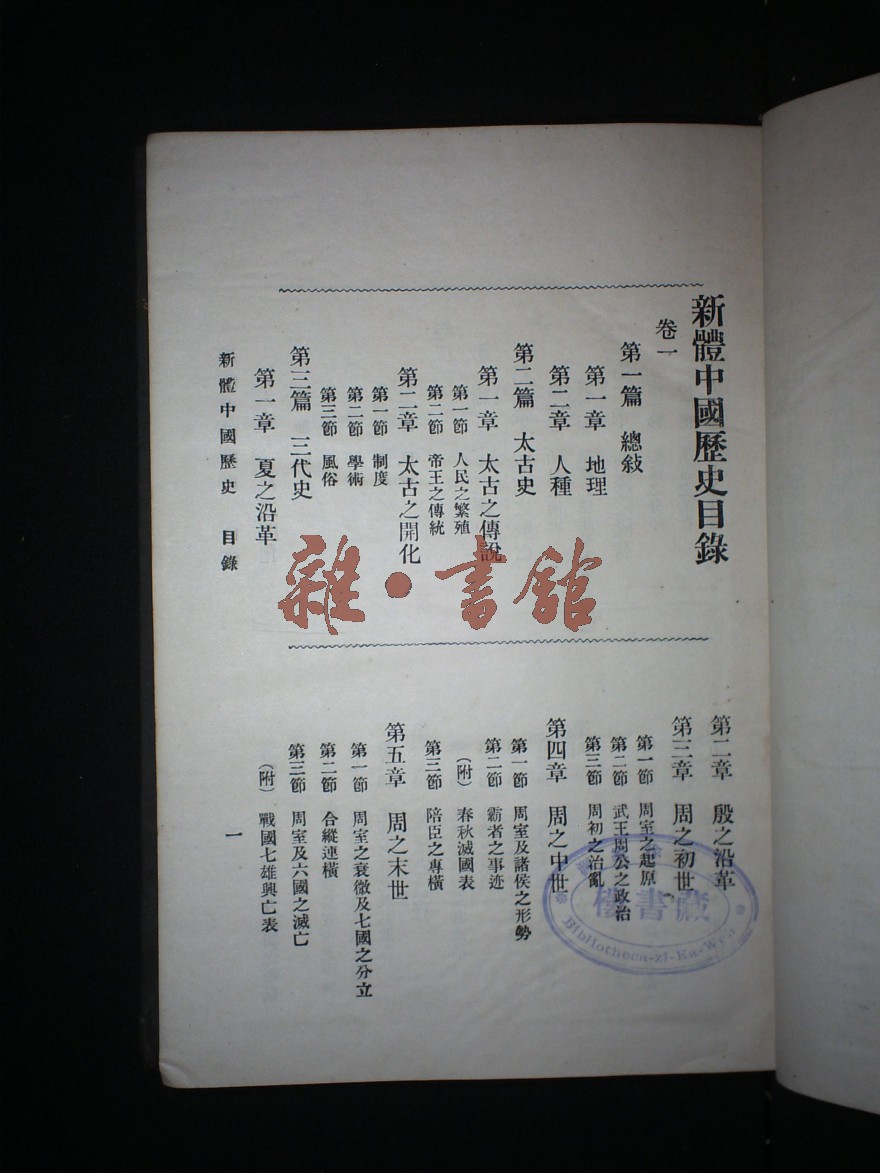 新體中國歷史目錄
卷一
第一篇 總敍
第一章 地理
第二章 人種
第二篇 太古史
第一章 太古之傳說
第一節 人民之繁殖
第二節 帝王之傳統
第二章 太古之開化
第一節 制度
第二節 學術
第三節 風俗
第三篇 三代史
第一章 夏之沿革
第二章 殷之沿革
第三章 周之初世
第一節 周室之起原
第二節 武王周公之政治
第三節 周初之治亂
第四章 周之中世
第一節 周室及諸侯之形勢
第二節 霸者之事迹
(附) 春秋滅國表
第三節 陪臣之專橫
第五章 周之末世
第一節 周室之衰微及七國之分立
第二節 合縱連橫
第三節 周室及六國之滅亡
(附) 戰國七雄興亡表
新體中國歷史 目錄
一
雜·書館
樓書藏
Bibliotheca-zi-Ka-Wei